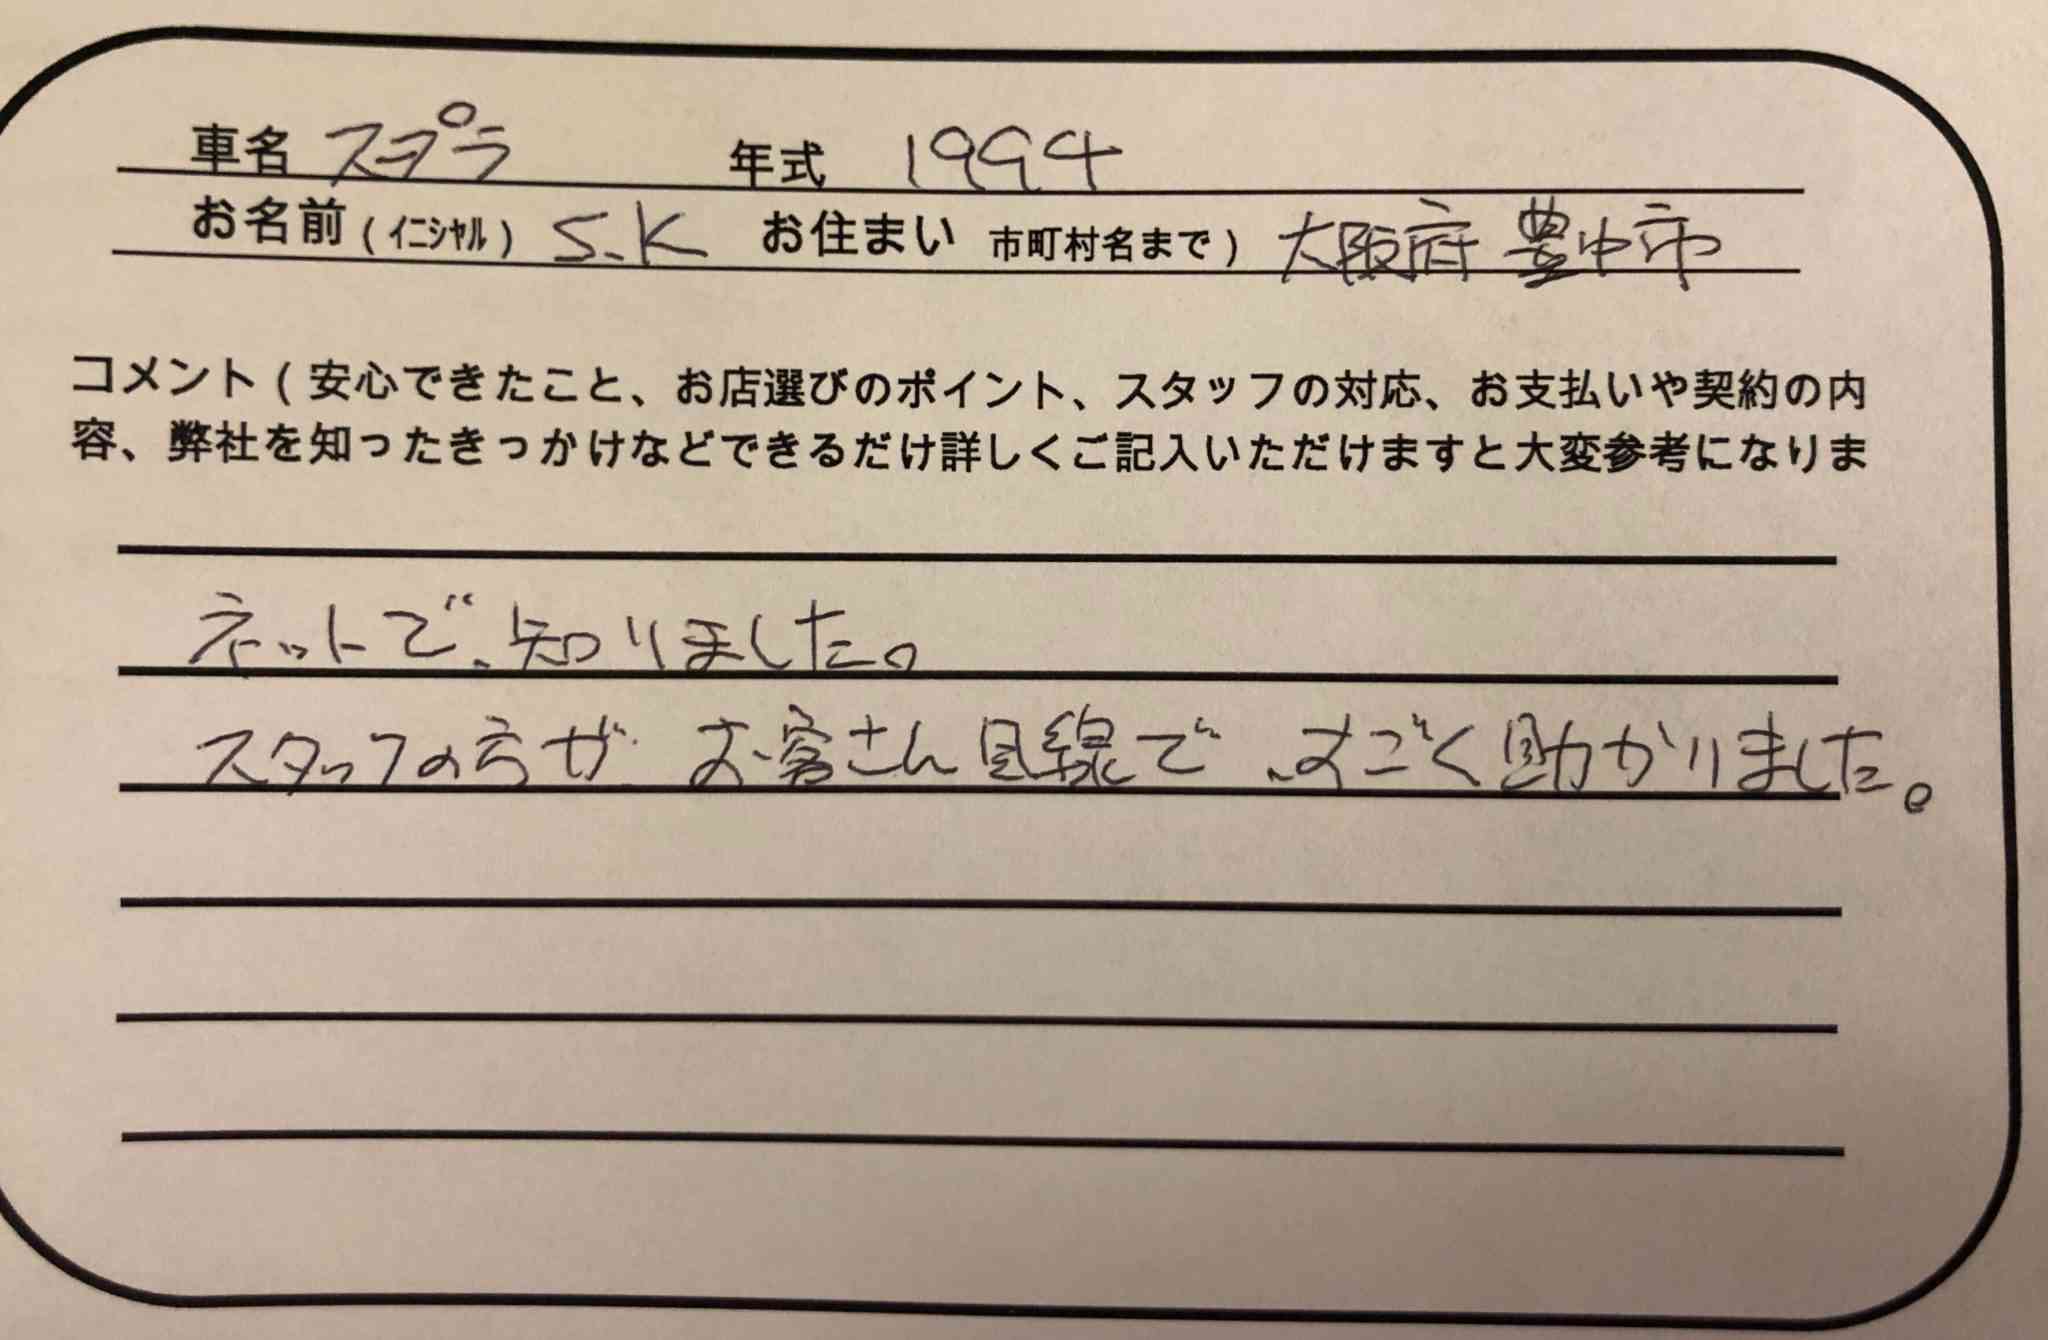 車名 スプラ 年式 1994
お名前(イニシャル) S.K お住まい 市町村名まで) 大阪府 豊中市
コメント(安心できたこと、お店選びのポイント、スタッフの対応、お支払いや契約の内
容、弊社を知ったきっかけなどできるだけ詳しくご記入いただけますと大変参考になりま
ネットで、知りました。
スタッフの方が お客さん目線で、すごく助かりました。